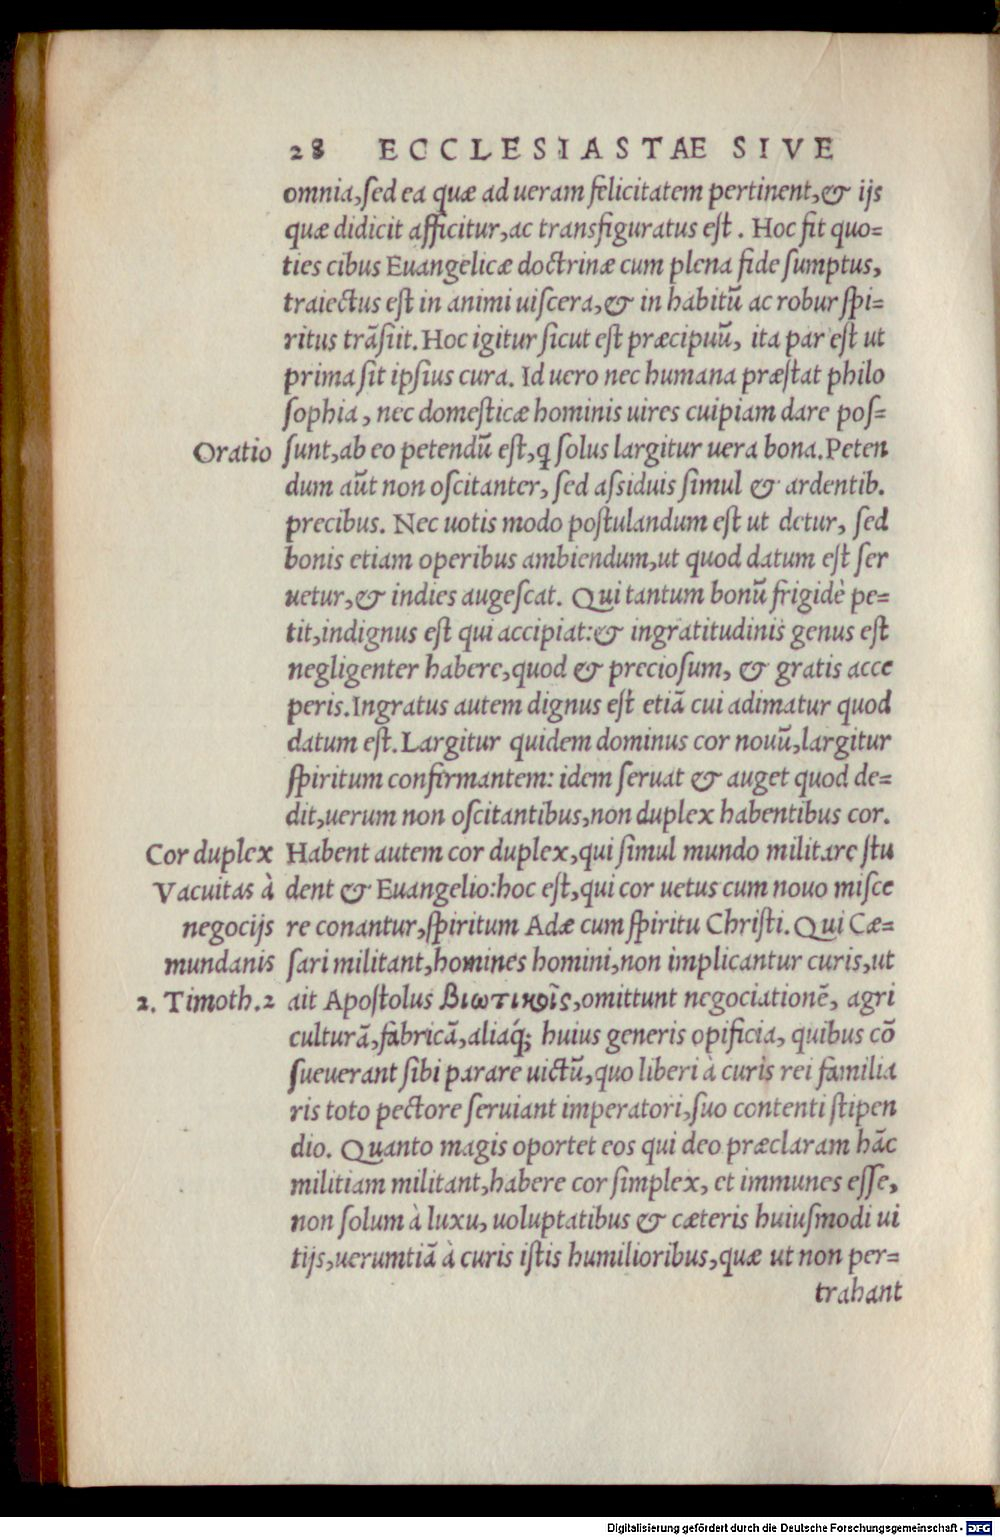 28 ECCLESIASTAE SIVE
omnia, sed ea quæ ad ueram felicitatem pertinent, & ijs
quæ didicit afficitur, ac transfiguratus est. Hoc fit quo=
ties cibus Euangelicæ doctrinæ cum plena fide sumptus,
traiectus est in animi uiscera, & in habitū ac robur spi=
ritus trāsiit. Hoc igitur sicut est præcipuū, ita par est ut
prima sit ipsius cura. Id uero nec humana præstat philo
sophia, nec domesticæ hominis uires cuipiam dare pos=
Oratio sunt, ab eo petendū est, q̨ solus largitur uera bona. Peten
dum aūt non oscitanter, sed assiduis simul & ardentib.
precibus. Nec uotis modo postulandum est ut detur, sed
bonis etiam operibus ambiendum, ut quod datum est ser
uetur, & indies augescat. Qui tantum bonū frigidè pe=
tit, indignus est qui accipiat: & ingratitudinis genus est
negligenter habere, quod & preciosum, & gratis acce
peris. Ingratus autem dignus est etiā cui adimatur quod
datum est. Largitur quidem dominus cor nouū, largitur
spiritum confirmantem: idem seruat & auget quod de=
dit, uerum non oscitantibus, non duplex habentibus cor.
Cor duplex Habent autem cor duplex, qui simul mundo militare stu
Vacuitas à dent & Euangelio: hoc est, qui cor uetus cum nouo misce
negocijs re conantur, spiritum Adæ cum spiritu Christi. Qui Cæ=
mundanis sari militant, homines homini, non implicantur curis, ut
2. Timoth. 2 ait Apostolus βιωτικοῖς, omittunt negociationē, agri
culturā, fabricā, aliaq́; huius generis opificia, quibus cō
sueuerant sibi parare uictū, quo liberi à curis rei familia
ris toto pectore seruiant imperatori, suo contenti stipen
dio. Quanto magis oportet eos qui deo præclaram hāc
militiam militant, habere cor simplex, et immunes esse,
non solum à luxu, uoluptatibus & cæteris huiusmodi ui
tijs, uerumtiā à curis istis humilioribus, quæ ut non per=
trahant
Digitalisierung gefördert durch die Deutsche Forschungsgemeinschaft - DFG